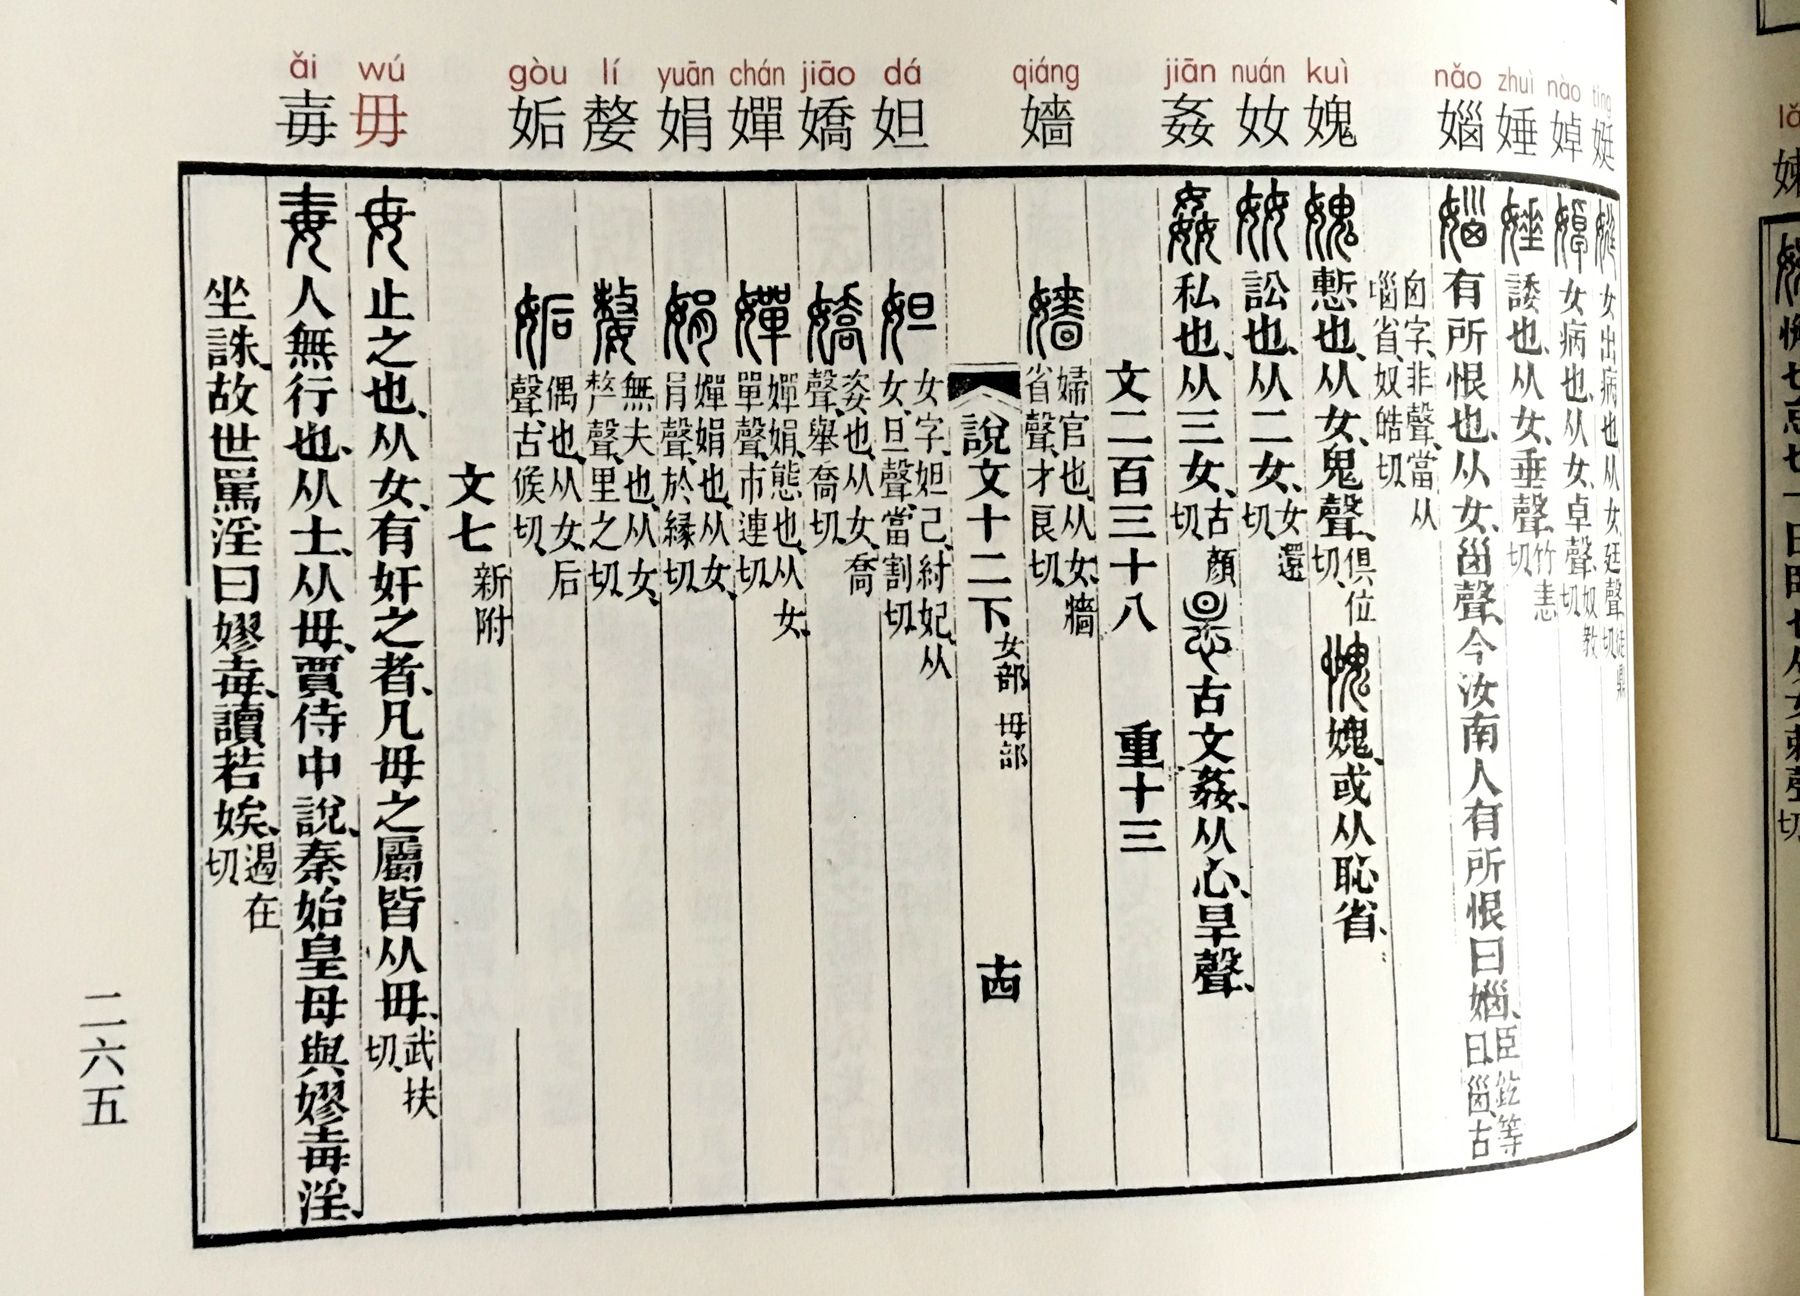 tǐng nào zhuì nǎo kuì nuán jiān qiáng dá jiāo chán yuān lí gòu wú ǎi
娗 婥 娷 㛴 媿 奻 姦 嬙 妲 嬌 嬋 娟 嫠 姤 毋 毐
娗女出病也从女廷聲徒鼎切
婥女病也从女卓聲奴教切
娷諉也从女垂聲竹恚切
㛴有所恨也从女㛴聲今汝南人有所恨曰㛴臣鉉等曰
囟字非聲當从㛴省奴皓切
媿慙也从女鬼聲俱位切愧媿或从恥省
奻訟也从二女女還切
姦私也从三女古顔切悬古文姦从心旱聲
文二百三十八 重十三
嬙婦官也从女牆省聲才良切
說文十二下女部 毋部 十四
妲女字妲己紂妃从女旦聲當割切
嬌姿也从女喬聲舉喬切
嬋嬋娟態也从女單聲市連切
娟嬋娟也从女肙聲於縁切
嫠無夫也从女𠩺聲里之切
姤偶也从女后聲古候切
文七新附
毋止之也从女有奸之者凡毋之屬皆从毋武扶切
毐人無行也从士从毋賈侍中說秦始皇母與嫪毐淫
坐誅故世罵淫曰嫪毐讀若娭遏在切
二六五